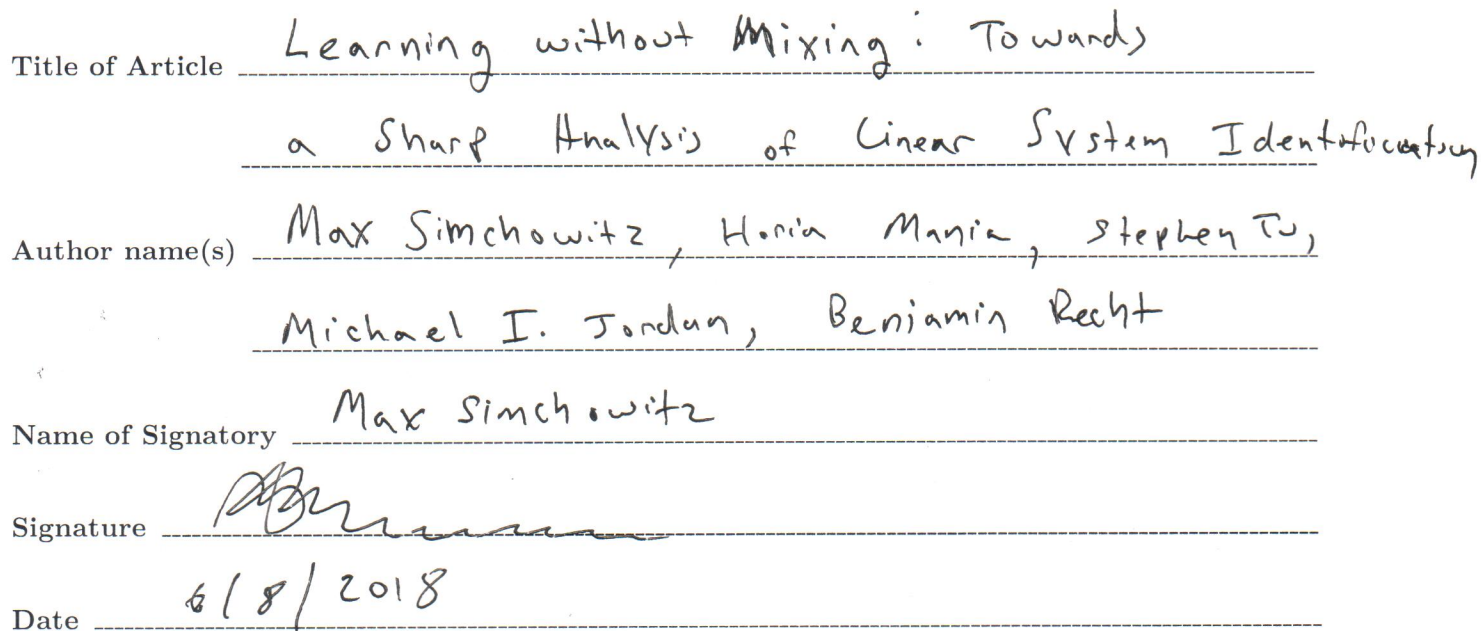 Title of Article Learning without Mixing: Towards
a Sharp Analysis of Linear System Identification
Author name(s) Max Simchowitz, Horia Mania, Stephen Tu,
Michael I. Jordan, Benjamin Recht
Name of Signatory Max Simchowitz
Signature
Date 6/8/2018